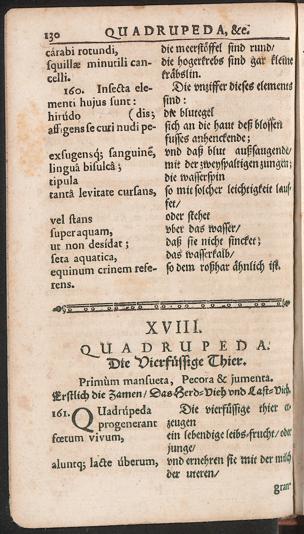 130 QUADRUPEDA, &c.
cárabi rotundi, die meerstöffel sind rund/
squillæ minutili can- die hogerkrebs sind gar kleine
celli. kräbslin.
160. Insecta ele- Die vnziffer dieses elements
menti hujus sunt: sind:
hirúdo (dis; die blutegel
affigens se curi nudi pe- sich an die haut deß blossen
fusses anhenckende;
exsugensq; sanguinẽ, vnd daß blut außsaugende/
linguâ bisulcâ; mit der zweyspaltigen zungen;
tipula die wasserspin
tantâ levitate cursans, so mit solcher leichtigkeit lauf-
fet/
vel stans oder stehet
super aquam, vber das wasser/
ut non desidat; daß sie nicht sincket;
seta aquatica, das wasserkalb/
equinum crinem refe- so dem roßhar ähnlich ist.
rens.
XVIII.
QUADRUPEDA.
Die Vierfüssige Thier.
Primùm mansueta, Pecora & jumenta.
Erstlich die Zamen/ Das Herd-Vieh vnd Last-Vieh.
161. QUadrúpeda Die vierfüssige thier er-
progenerant zeugen
fœtum vivum, ein lebendige leibs-frucht/ oder
junge/
aluntq; lacte úberum, vnd ernehren sie mit der milch
der uteren/
gran-